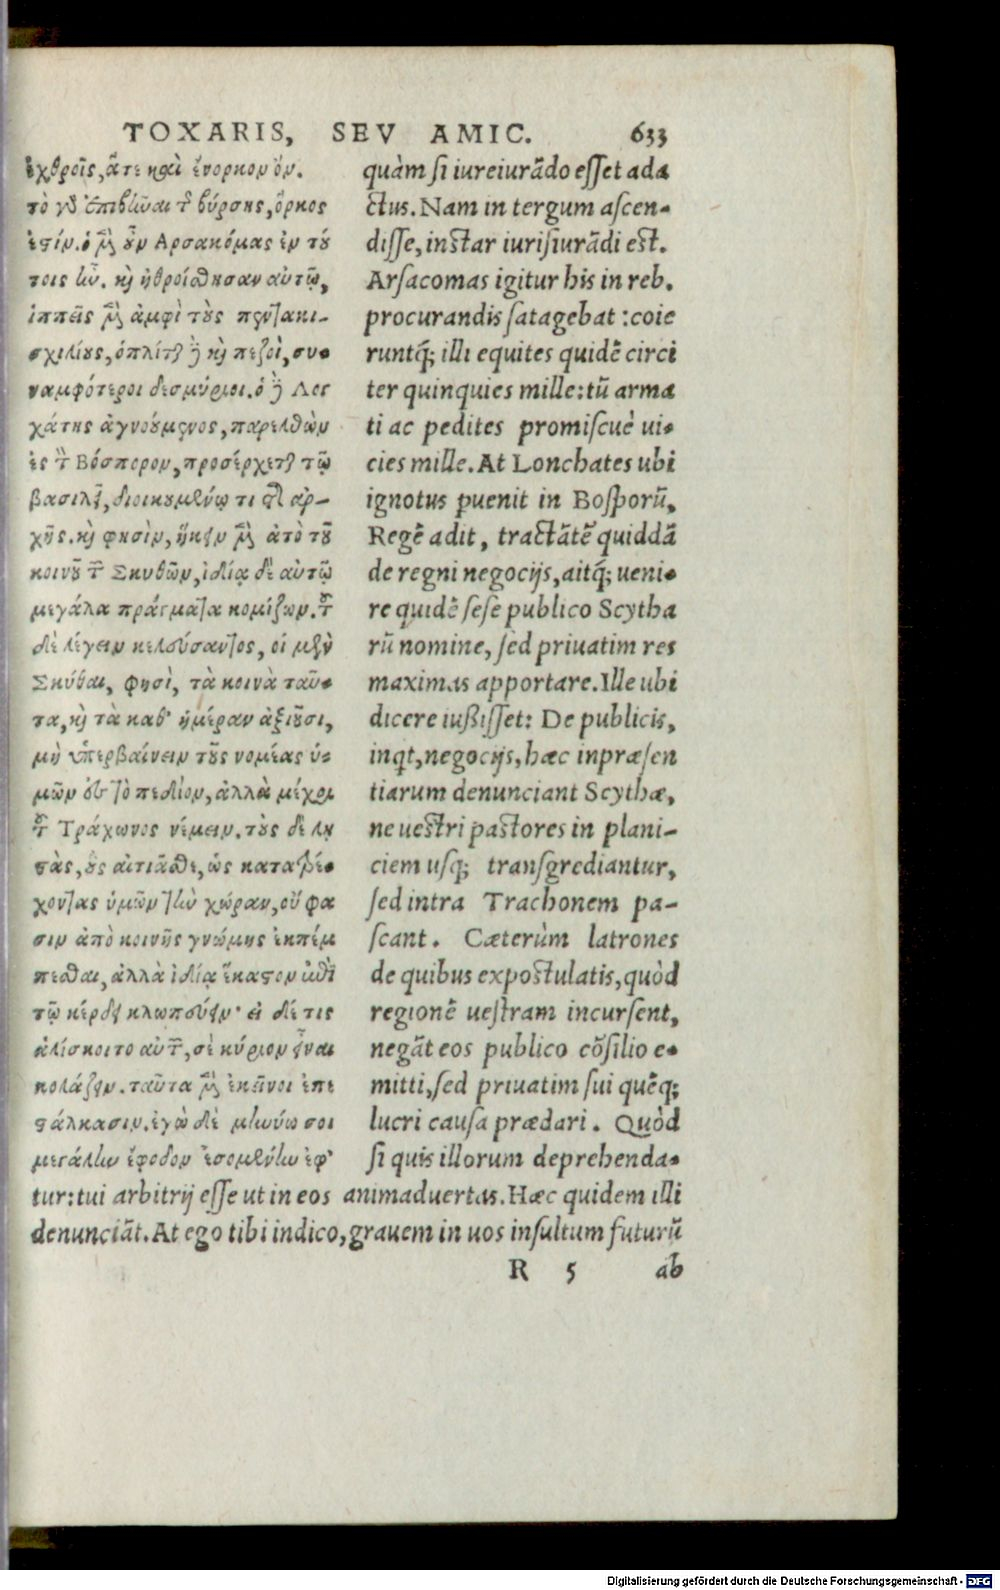 TOXARIS, SEV AMIC. 633
ἐχθροῖς, ἅτε καὶ ἔνορκον ὄν.
τὸ γὸ ἐπιβῶαι τ̃ βύρσης, ὅρκος
ἐστίν. ὁ μὲν οὖν Αρσακόμας ἐν τού
τοις ἦν. κὴ ἠθροίσθησαν αὐτῷ,
ἱππεῖς μὲν ἀμφὶ τοὺς πεντακι-
σχιλίους, ὁπλίται δὲ κὴ πεζοὶ, συν
ναμφότεροι δισμύριοι. ὁ δὲ Λογ
χάτης ἀγνούμενος, παρελθὼν
ἐς τὸν Βόσπορον, προσέρχεται τῷ
βασιλεῖ, διοικουμένῳ τι τῆς ἀρ-
χῆς. κὴ φησὶν, ἥκειν μὲν ἀπὸ τοῦ
κοινοῦ τῶν Σκυθῶν, ἰδίᾳ δὲ αὐτῷ
μεγάλα πράγματα κομίζων. τοῦ
δὲ λέγειν κελεύσαντος, οἱ μὲν
Σκύθαι, φησὶ, τὰ κοινὰ ταῦ-
τα, κὴ τὰ καθ' ἡμέραν ἀξιοῦσι,
μὴ ὑπερβαίνειν τοὺς νομέας ὑ-
μῶν ἐς τὸ πεδίον, ἀλλὰ μέχρι
τοῦ Τράχωνος νέμειν. τοὺς δὲ λῃ
στὰς, οὓς αἰτιᾶσθε, ὡς κατατρέ-
χοντας ὑμῶν τὴν χώραν, οὔ φα
σιν ἀπὸ κοινῆς γνώμης ἐκπέμ
πεσθαι, ἀλλὰ ἰδίᾳ ἕκαστον ἐπὶ
τῷ κέρδει κλωπεύειν· εἰ δέ τις
ἁλίσκοιτο αὐτῶν, σὲ κύριον εἶναι
κολάζειν. ταῦτα μὲν ἐκεῖνοι ἐπε
στάλκασιν. ἐγὼ δὲ μηνύω σοι
μεγάλην ἔφοδον ἐσομένην ἐφ'
quàm si iureiurãdo esset ada
ctus. Nam in tergum ascen-
disse, instar iurisiurãdi est.
Arsacomas igitur his in reb.
procurandis satagebat: coie
runtq́; illi equites quidẽ circi
ter quinquies mille: tũ arma
ti ac pedites promiscuè ui-
cies mille. At Lonchates ubi
ignotus puenit in Bosporũ,
Regẽ adit, tractãtẽ quiddã
de regni negocijs, aitq́; ueni-
re quidẽ sese publico Scytha
rũ nomine, sed priuatim res
maximas apportare. Ille ubi
dicere iußisset: De publicis,
inqt, negocijs, hæc inpræsen
tiarum denunciant Scythæ,
ne uestri pastores in plani-
ciem usq; transgrediantur,
sed intra Trachonem pa-
scant. Cæterùm latrones
de quibus expostulatis, quòd
regionẽ uestram incursent,
negãt eos publico cõsilio e-
mitti, sed priuatim sui quẽq;
lucri causa prædari. Quòd
si quis illorum deprehenda-
tur: tui arbitrij esse ut in eos animaduertas. Hæc quidem illi
denunciãt. At ego tibi indico, grauem in uos insultum futurũ
R 5 ab
Digitalisierung gefördert durch die Deutsche Forschungsgemeinschaft - DFG